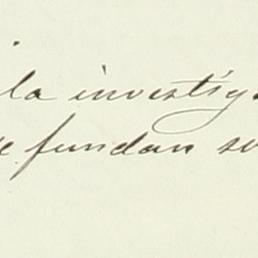 la investig
fundan su